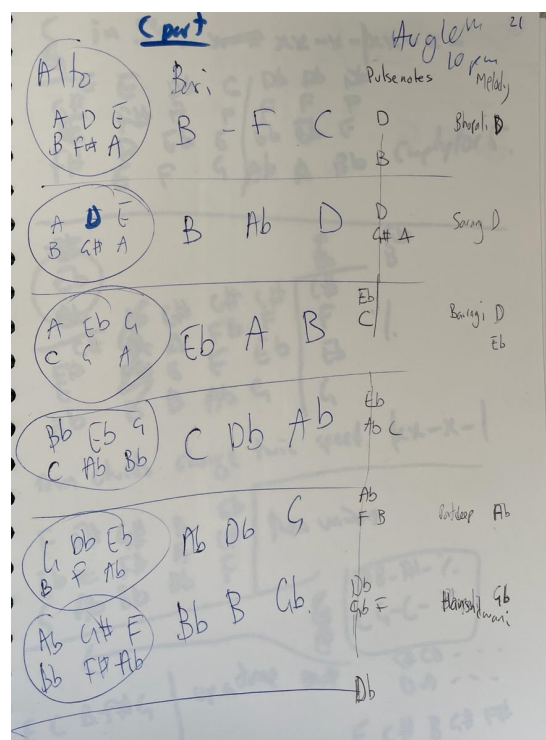 C part
21
10 pm
Alto Bari Pulse notes Melody
A D E
B F# A
B - F C
D
B
Bhopali D
A D E
B G# A
B Ab D
D
G# A
Sarang D
A Eb G
C G A
Eb A B
Eb
C
Bairagi D
Eb
Bb Eb G
C Ab Bb
C Db Ab
Eb
Ab C
G Db Eb
B F Ab
Ab Db G
Ab
F B
Ab
Ab G# F
Bb F# Ab
Bb B Gb.
Db
Gb F
Hansadhwani Gb
Db